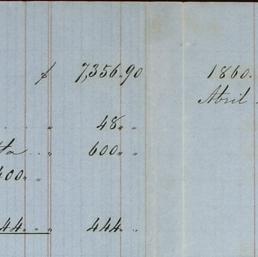 $ 7,356.90 1860.
Abril
" 48 " "
" 600 " "
400 " "
44 " " " 444 " "